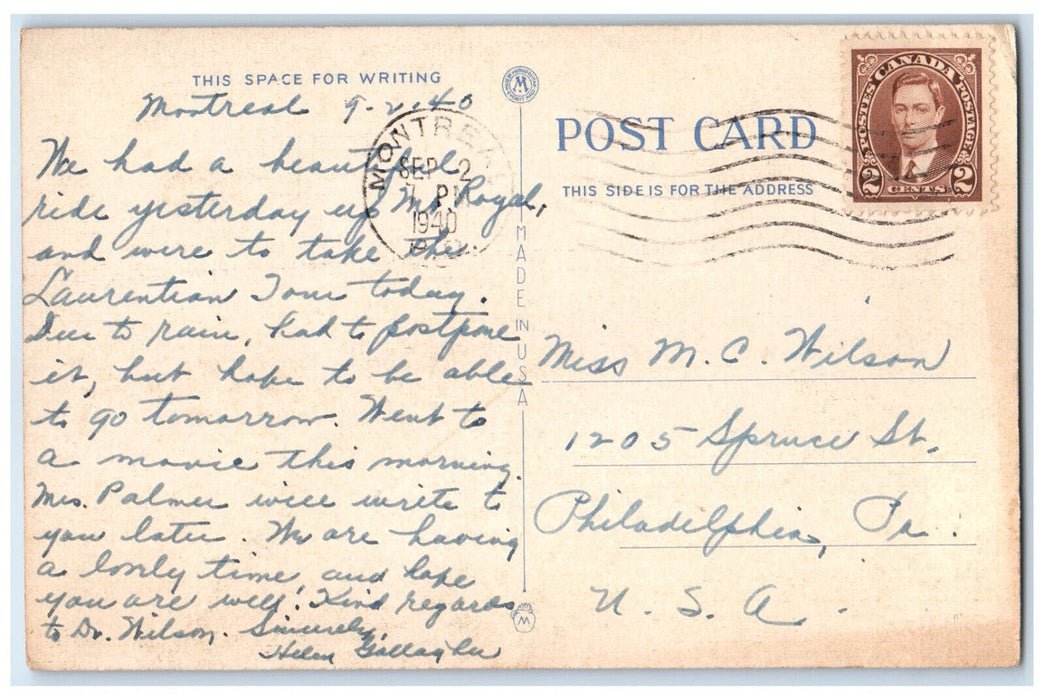 THIS SPACE FOR WRITING
Montreal 9-2-40
We had a beautiful
ride yesterday up Mt Royal,
and were to take the
Laurentian Tour today.
Due to rain, had to postpone
it, but hope to be able
to go tomorrow. Went to
a movie this morning.
Mrs. Palmer will write to
you later. We are having
a lovely time, and hope
you are well. Kind regards
to Dr. Wilson. Sincerely,
Helen Gallagher
MONTREAL
SEP 2
PM
1940
MADE IN USA
M
POST CARD
THIS SIDE IS FOR THE ADDRESS
CANADA
POSTES POSTAGE
2 CENTS 2
Miss M. C. Wilson
1205 Spruce St.
Philadelphia, Pa.
U. S. A.